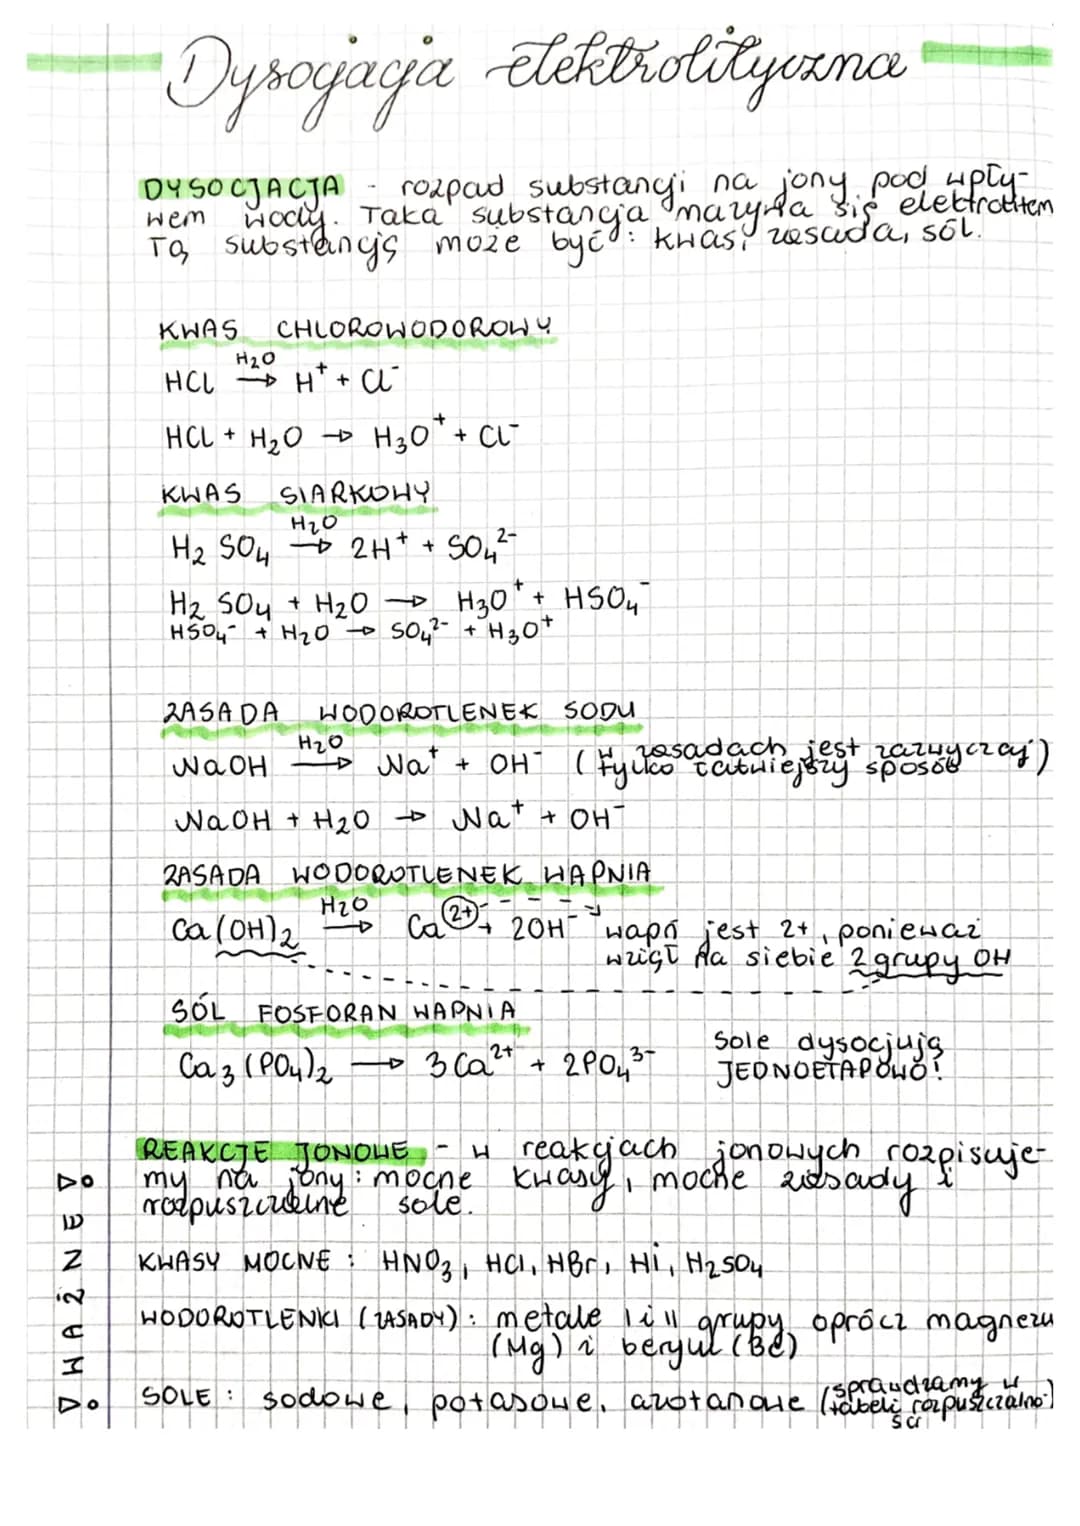 Dysocjacja elektrolityczna
DYSOCJACJA - rozpad substancji na jony pod wpły-
wem wody. Taka substancja nazywa się elektrolitem
Tą substancją może być: kwas, zasada, sól.
KWAS CHLOROWODOROWY
H₂O
HCl → H⁺ + Cl⁻
HCl + H₂O → H₃O⁺ + Cl⁻
KWAS SIARKOWY
H₂O
H₂SO₄ → 2H⁺ + SO₄²⁻
H₂SO₄ + H₂O → H₃O⁺ + HSO₄⁻
HSO₄⁻ + H₂O → SO₄²⁻ + H₃O⁺
ZASADA WODOROTLENEK SODU
H₂O
NaOH → Na⁺ + OH⁻ (w zasadach jest zazwyczaj
tylko łatwiejszy sposób)
NaOH + H₂O → Na⁺ + OH⁻
ZASADA WODOROTLENEK WAPNIA
H₂O
Ca(OH)₂ → Ca²⁺ + 2OH⁻ wapń jest 2+, ponieważ
wziął na siebie 2 grupy OH
SÓL FOSFORAN WAPNIA
Ca₃(PO₄)₂ → 3Ca²⁺ + 2PO₄³⁻ Sole dysocjują
JEDNOETAPOWO!
REAKCJE JONOWE - w reakcjach jonowych rozpisuje-
my na jony: mocne kwasy, mocne zasady i
rozpuszczalne sole.
DO WAŻNE DO
KWASY MOCNE: HNO₃, HCl, HBr, Hi, H₂SO₄
WODOROTLENKI (ZASADY): metale I i II grupy oprócz magnezu
(Mg) i berylu (Be)
SOLE: sodowe, potasowe, azotanowe (sprawdzamy w
tabeli rozpuszczalno-
ści)